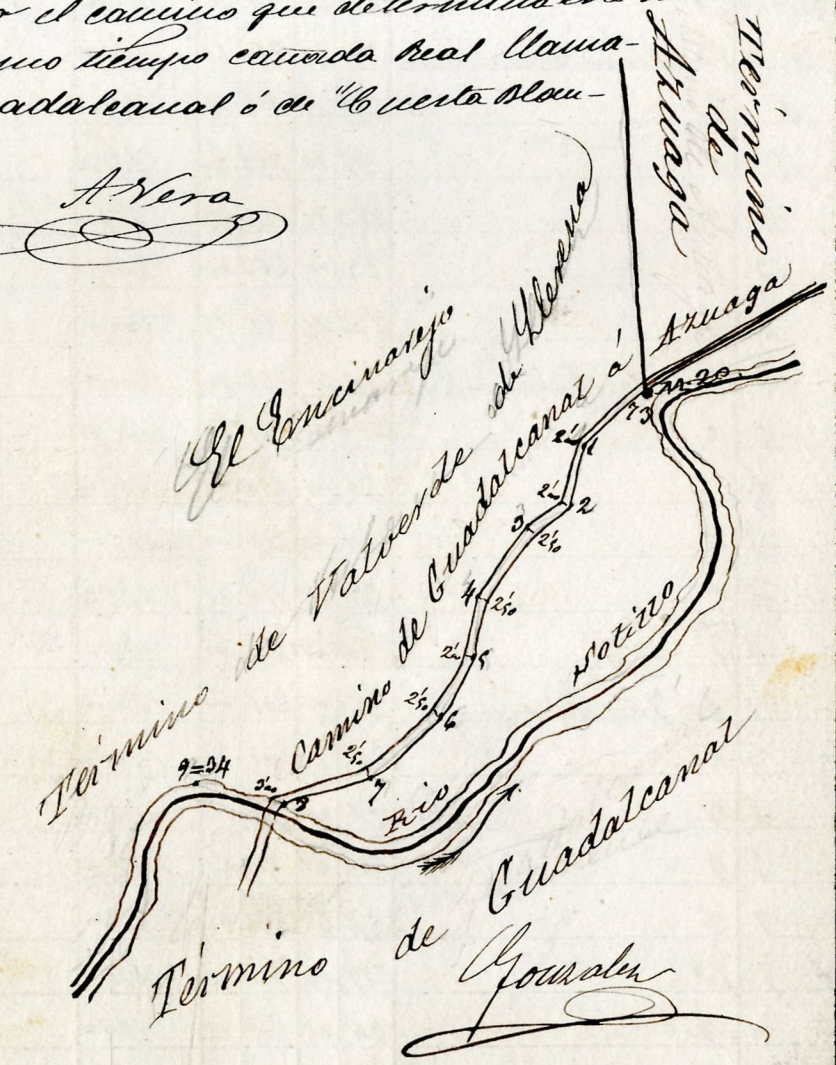 el camino que determina
mo tiempo cañada Real llama-
adalcanal ó de "Cuesta Blan-
A. Vera
Término
de
Azuaga
El Encinarejo
Término de Valverde de Llerena
Camino de Guadalcanal á Azuaga
1
2
3
2'50
4
2'50
5
6
2'50
7
2'50
8
9=34
Rio Sotillo
Término de Guadalcanal
Gonzalez